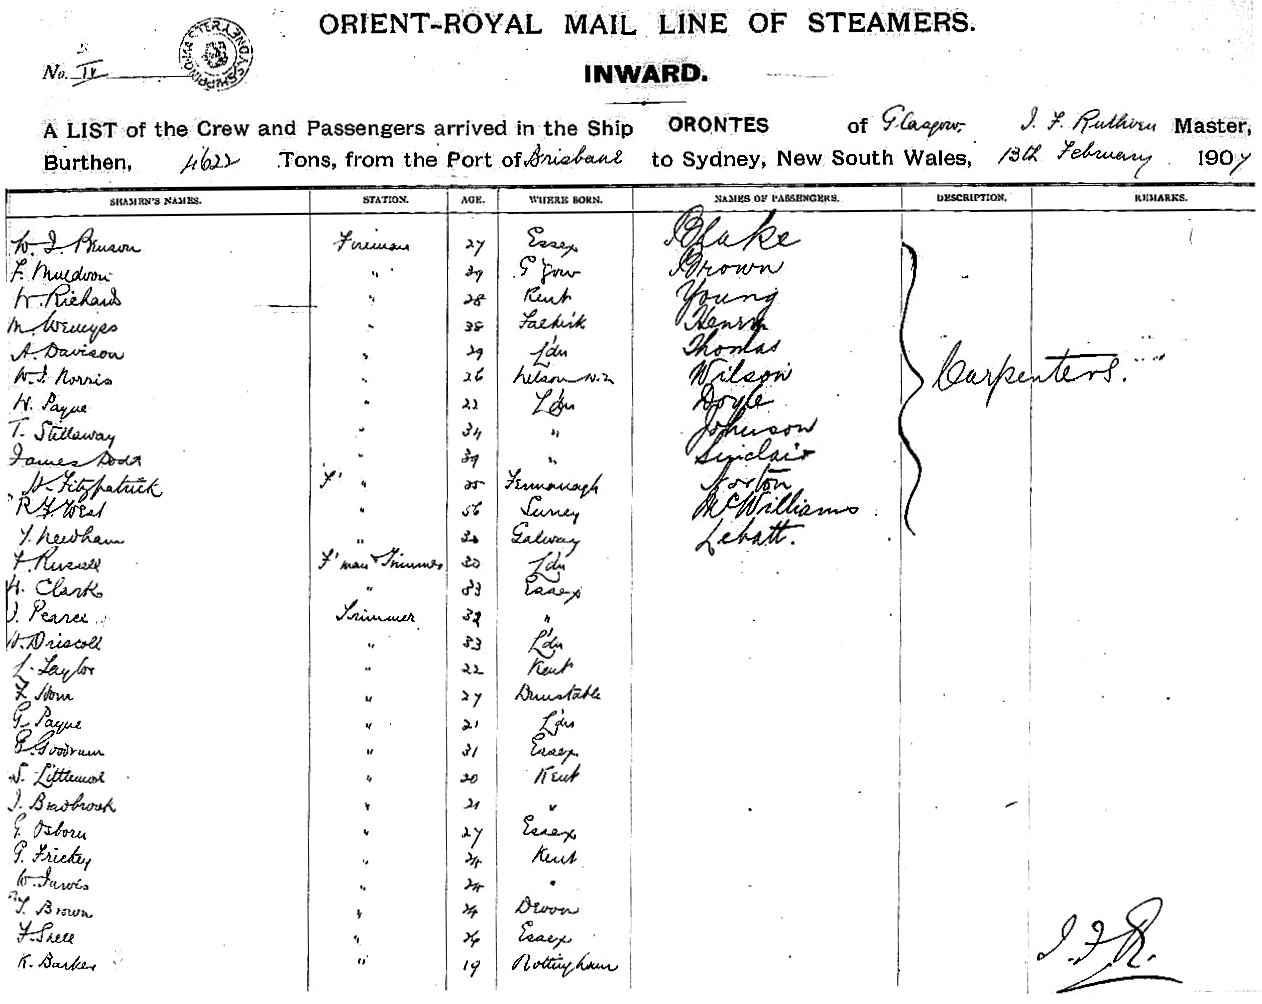 ORIENT-ROYAL MAIL LINE OF STEAMERS.
No. IV
INWARD.
A LIST of the Crew and Passengers arrived in the Ship ORONTES of Glasgow, J. F. Ruthven Master,
Burthen, 4622 Tons, from the Port of Brisbane to Sydney, New South Wales, 13th February 1907
SEAMEN'S NAMES. STATION. AGE. WHERE BORN. NAMES OF PASSENGERS. DESCRIPTION. REMARKS.
Fireman 27 Essex Blake
F. Muldoon " 39 G'gow Brown
W. Richards " 28 Kent Young
M. Wemyss " 38 Falkirk Henry
A. Davison " 29 L'dn Thomas
W. J. Norris " 26 Nelson N.Z. Wilson Carpenters.
H. Payne " 22 L'dn Doyle
T. Stellaway " 34 " Johnson
James Dodd " 39 " Sinclair
H. Fitzpatrick F' " Fermanagh Norton
West " 56 Surrey McWilliams
Newham " Galway Lebatt.
F. Russell F'man & Trimmer 30 L'dn
H. Clark " 33 Essex
J. Pearce Trimmer 32 "
H. Driscoll " 33 L'dn
L. Taylor " 22 Kent
" 27 Dunstable
G. Payne " 21 L'dn
E. Goodrum " 31 Essex
S. Littlewood " 20 Kent
J. Bradbrook " 21 "
G. Osborn " 27 Essex
G. Frickey " 24 Kent
W. Jarvis " 24 "
T. Brown " 24 Devon
F. Snell " 26 Essex
K. Barker " 19 Nottingham
J. F. R.